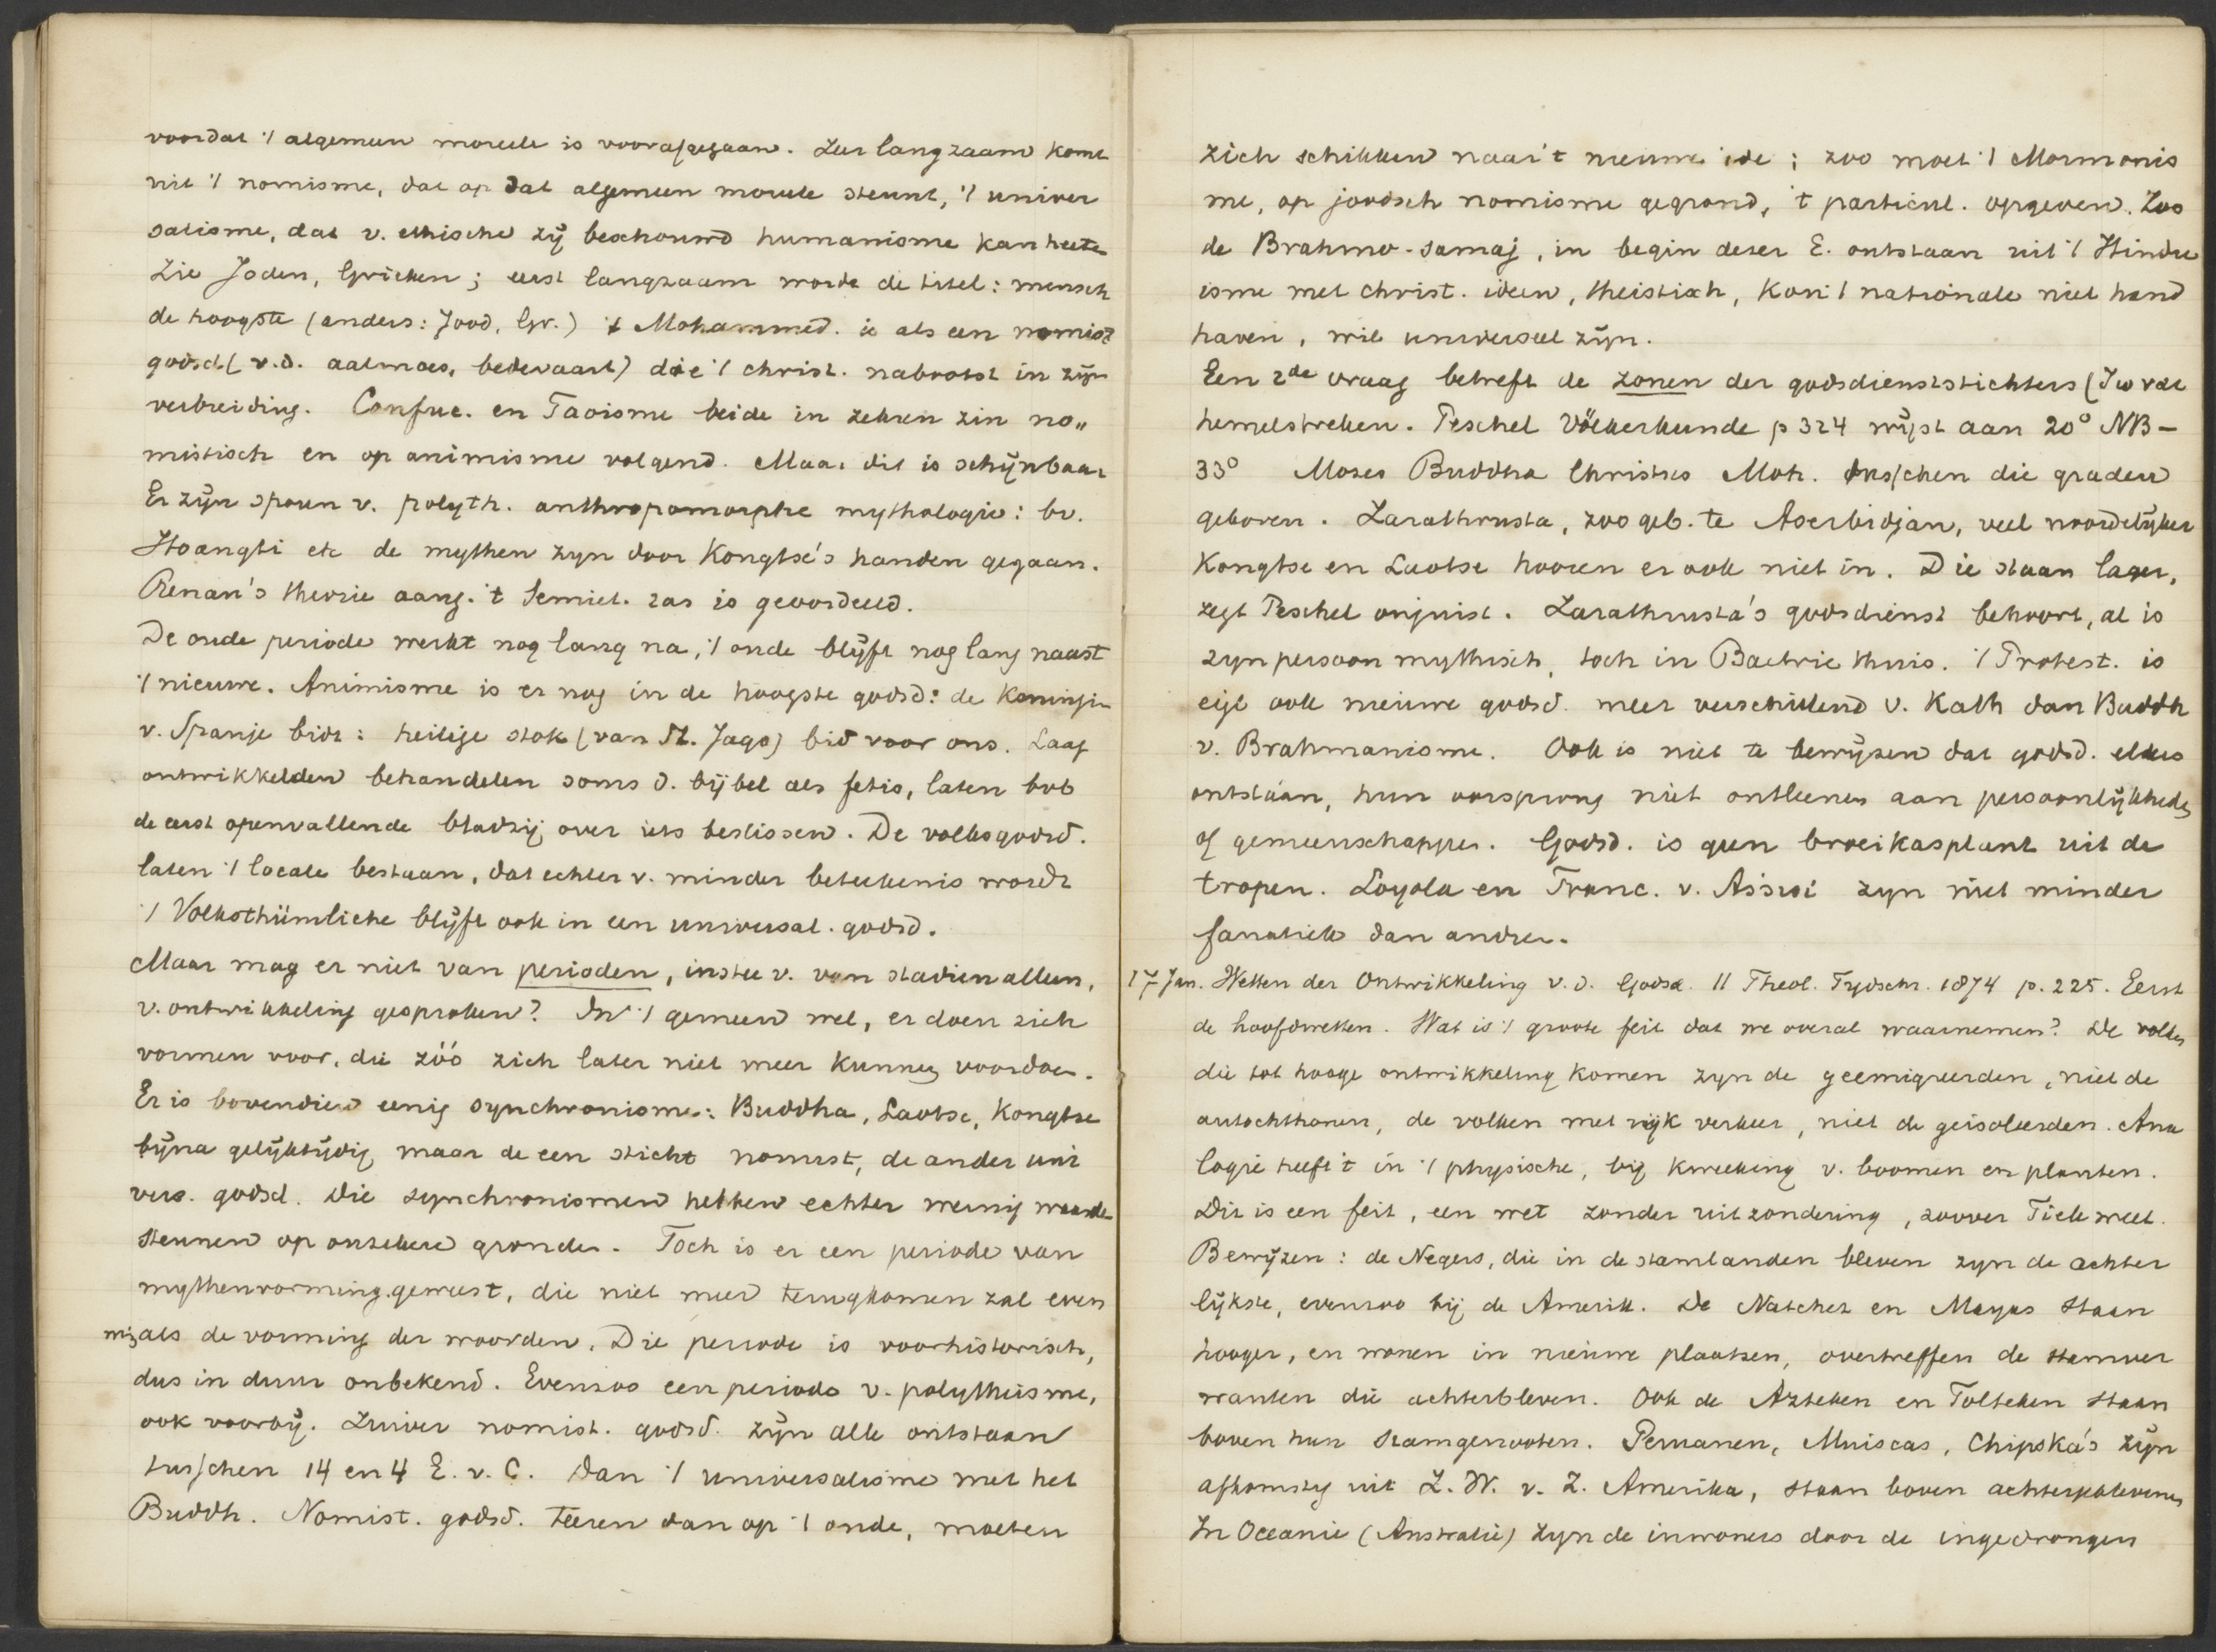 voordat 't algemeen moreele is voorafgegaan. Zeer langzaam komt
uit 't nomisme, dat op dat algemeen moreele steunt, 't univer
salisme, dat v. ethische zij beschouwd humanisme kan heeten
Zie Joden, Grieken; eerst langzaam wordt de titel: mensch
de hoogste (anders: Jood, Gr.) Mohammed. is als een nomist
godsd. (v.d. aalmoes, bedevaart) die 't christ. nabootst in zijn
verbreiding. Confuc. en Taoisme beide in zekren zin no„
mistisch en op animisme volgend. Maar dit is schijnbaar
Er zijn sporen v. polyth. anthropomorphe mythologie: bv.
Hoangti etc de mythen zyn door Kongtse's handen gegaan.
Renan's theorie aang. 't Semiet. ras is geoordeeld.
De oude periode werkt nog lang na, 't oude blijft nog lang naast
't nieuwe. Animisme is er nog in de hoogste godsd: de Koningin
v. Spanje bidt: heilige stok (van St. Jago) bid voor ons. Laag
ontwikkelden behandelen soms d. bijbel als fetis, laten bvb
de eerst openvallende bladzij over iets beslissen. De volksgodsd.
laten 't locale bestaan, dat echter v. minder beteekenis wordt
't Volksthümliche blijft ook in een universal. godsd.
Maar mag er niet van perioden, instee v. van stadien alleen,
v. ontwikkeling gesproken? In 't gemeen wel, er doen zich
vormen voor, die zóó zich later niet meer kunnen voordoen.
Er is bovendien eenig synchronisme: Buddha, Laotse, Kongtse
bijna gelijktijdig maar de een sticht nomist, de ander uni
vers. godsd. Die synchronismen hebben echter weinig waarde
steunen op onzekere gronden. Toch is er een periode van
mythenvorming geweest, die niet meer terugkomen zal even
min als de vorming der woorden. Die periode is voorhistorisch,
dus in duur onbekend. Evenzoo een periode v. polytheisme,
ook voorbij. Zuiver nomist. godsd. zijn alle ontstaan
tusschen 14 en 4 E. v. C. Dan 't universalisme met het
Buddh. Nomist. godsd. teeren dan op 't oude, moeten
zich schikken naar 't nieuwe idee; zoo moet 't Mormonis
me, op joodsch nomisme gegrond, 't particul. opgeven. Zoo
de Brahmo-samaj, in begin dezer E. ontstaan uit 't Hindu
isme met christ. ideen, theistisch, kon 't nationale niet hand
haven, wil universeel zijn.
Een 2de vraag betreft de zonen der godsdienststichters (
hemelstreken. Peschel Völkerkunde p 324 wijst aan 20° NB –
33° Moses Buddha Christus Moh. tusschen die graden
geboren. Zarathrusta, zoo geb. te Aserbidjan, veel noordelijker
Kongtse en Laotse hooren er ook niet in. Die staan lager,
zegt Peschel onjuist. Zarathrusta's godsdienst behoort, al is
zyn persoon mythisch, toch in Bactrie thuis. 't Protest. is
eigl ook nieuwe godsd. meer verschillend v. Kath dan Buddh
v. Brahmanisme. Ook is niet te bewijzen dat godsd. elders
ontstáán, hun oorsprong niet ontleenen aan persoonlijkheden
of gemeenschappen. Godsd. is geen broeikasplant uit de
tropen. Loyola en Franc. v. Assisi zyn niet minder
fanatiek dan andren.
17 Jan. Wetten der Ontwikkeling v.d. Godsd. II Theol. Tydschr. 1874 p. 225. Eerst
de hoofdwetten. Wat is 't groote feit dat we overal waarnemen? De volken
die tot hooge ontwikkeling komen zyn de geemigreerden, niet de
autochthonen, de volken met rijk verkeer, niet de geisoleerden. Ana
logie heeft 't in 't physische, bij kweeking v. boomen en planten.
Dit is een feit, een wet zonder uitzondering, zoover Tiele weet.
Bewijzen: de Negers, die in de stamlanden bleven zyn de achter
lijkste, evenzoo bij de Amerik. De Natchez en Mayas staan
hooger, en wonen in nieuwe plaatsen, overtreffen de stamver
wanten die achterbleven. Ook de Azteken en Tolteken staan
boven hun stamgenooten. Peruanen, Muiscas, Chipska's zijn
afkomstig uit Z. W. v. Z. Amerika, staan boven achtergeblevenen
In Oceanie (Australie) zyn de inwoners door de ingedrongen